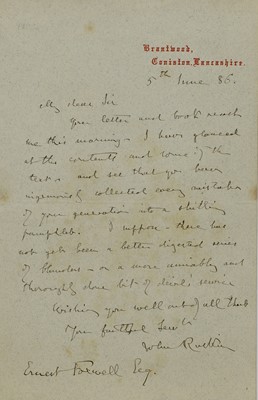 Brantwood,
Coniston, Lancashire.
5th June 86.
My dear Sir
Your letter and book reach
me this morning. I have glanced
at the contents and some of the
text and see that you have
ingeniously collected every mistake
of your generation into a shilling
pamphlet. I suppose there has
not yet been a better digested series
of blunders - or a more amiably and
thoroughly done list of devil's service
Wishing you well out of all that
Your faithful Servt
John Ruskin
Ernest Foxwell Esq.